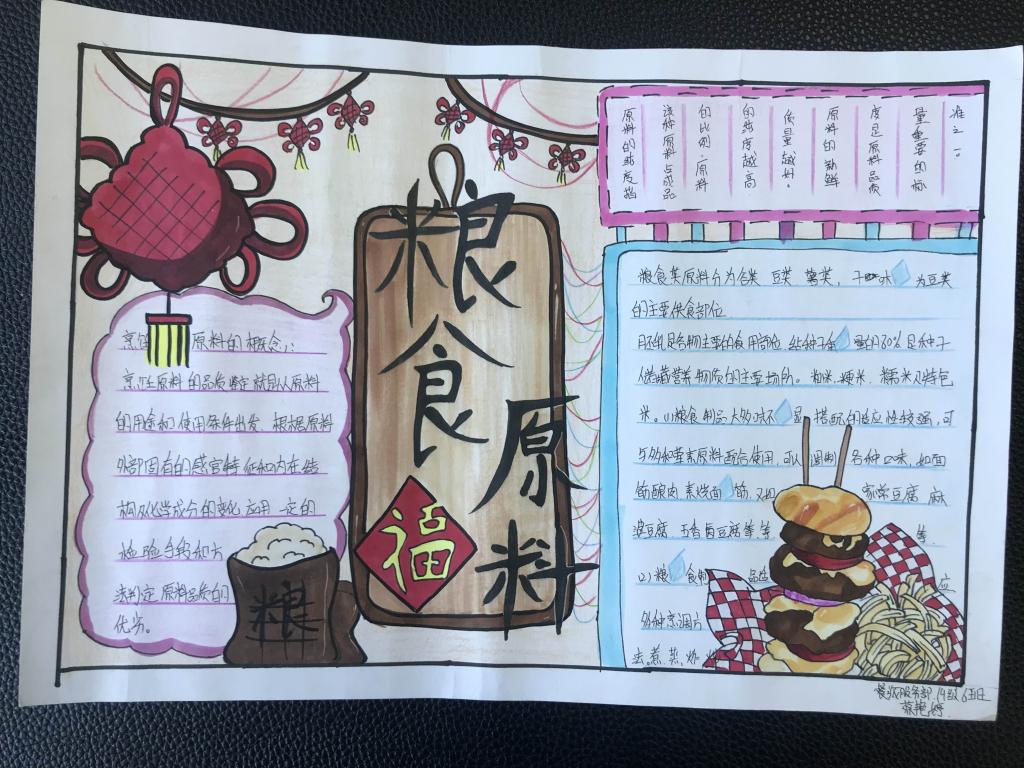 粮食
原料
福
粮
烹饪原料的概念:
烹饪原料的品质鉴定就是从原料
的用途和使用条件出发 根据原料
外部固有的感官特征和内在结
构及化学成分的变化 应用一定的
检验手段和方
法判定原料品质的
优劣。
原料的纯度指
该种原料占成品
的比例.原料
的纯度越高
质量越好。
原料的新鲜
度是原料品质
量重要的标
准之一。
粮食类原料分为谷类 豆类 薯类, 为豆类
的主要供食部位
胚乳是谷物主要的食用部位 的80%是种子
储藏营养物质的主要场所。籼米.粳米.糯米 特色
米。(1)粮食制品大多味不 显 搭配的适应性较强,可
与多种荤素原料配合使用,可以调制 各种口味,如面
筋酿肉.素烧面筋. 家常豆腐 麻
婆豆腐 五香卤豆腐等等 等
(2)粮食制品适应
多种烹调方
法.煮.蒸.炒.
餐旅服务部.19级6班